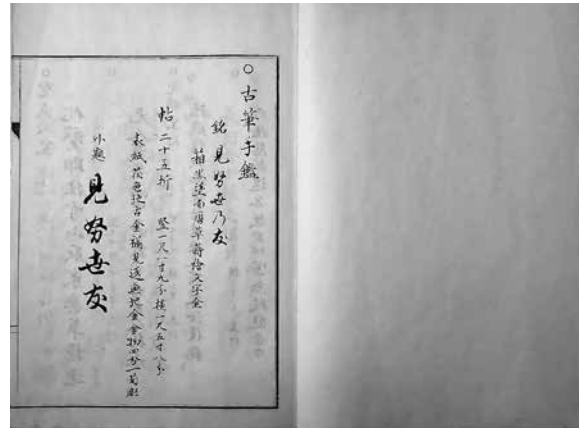 ○古筆手鑑
銘 見努世乃友
箱黒塗南唐草蒔絵文字金
帖 二十五折 竪一尺八寸九分横一尺五寸八分
表紙花色地古金襴見返無地金金物四分一菊彫
外題 見努世友